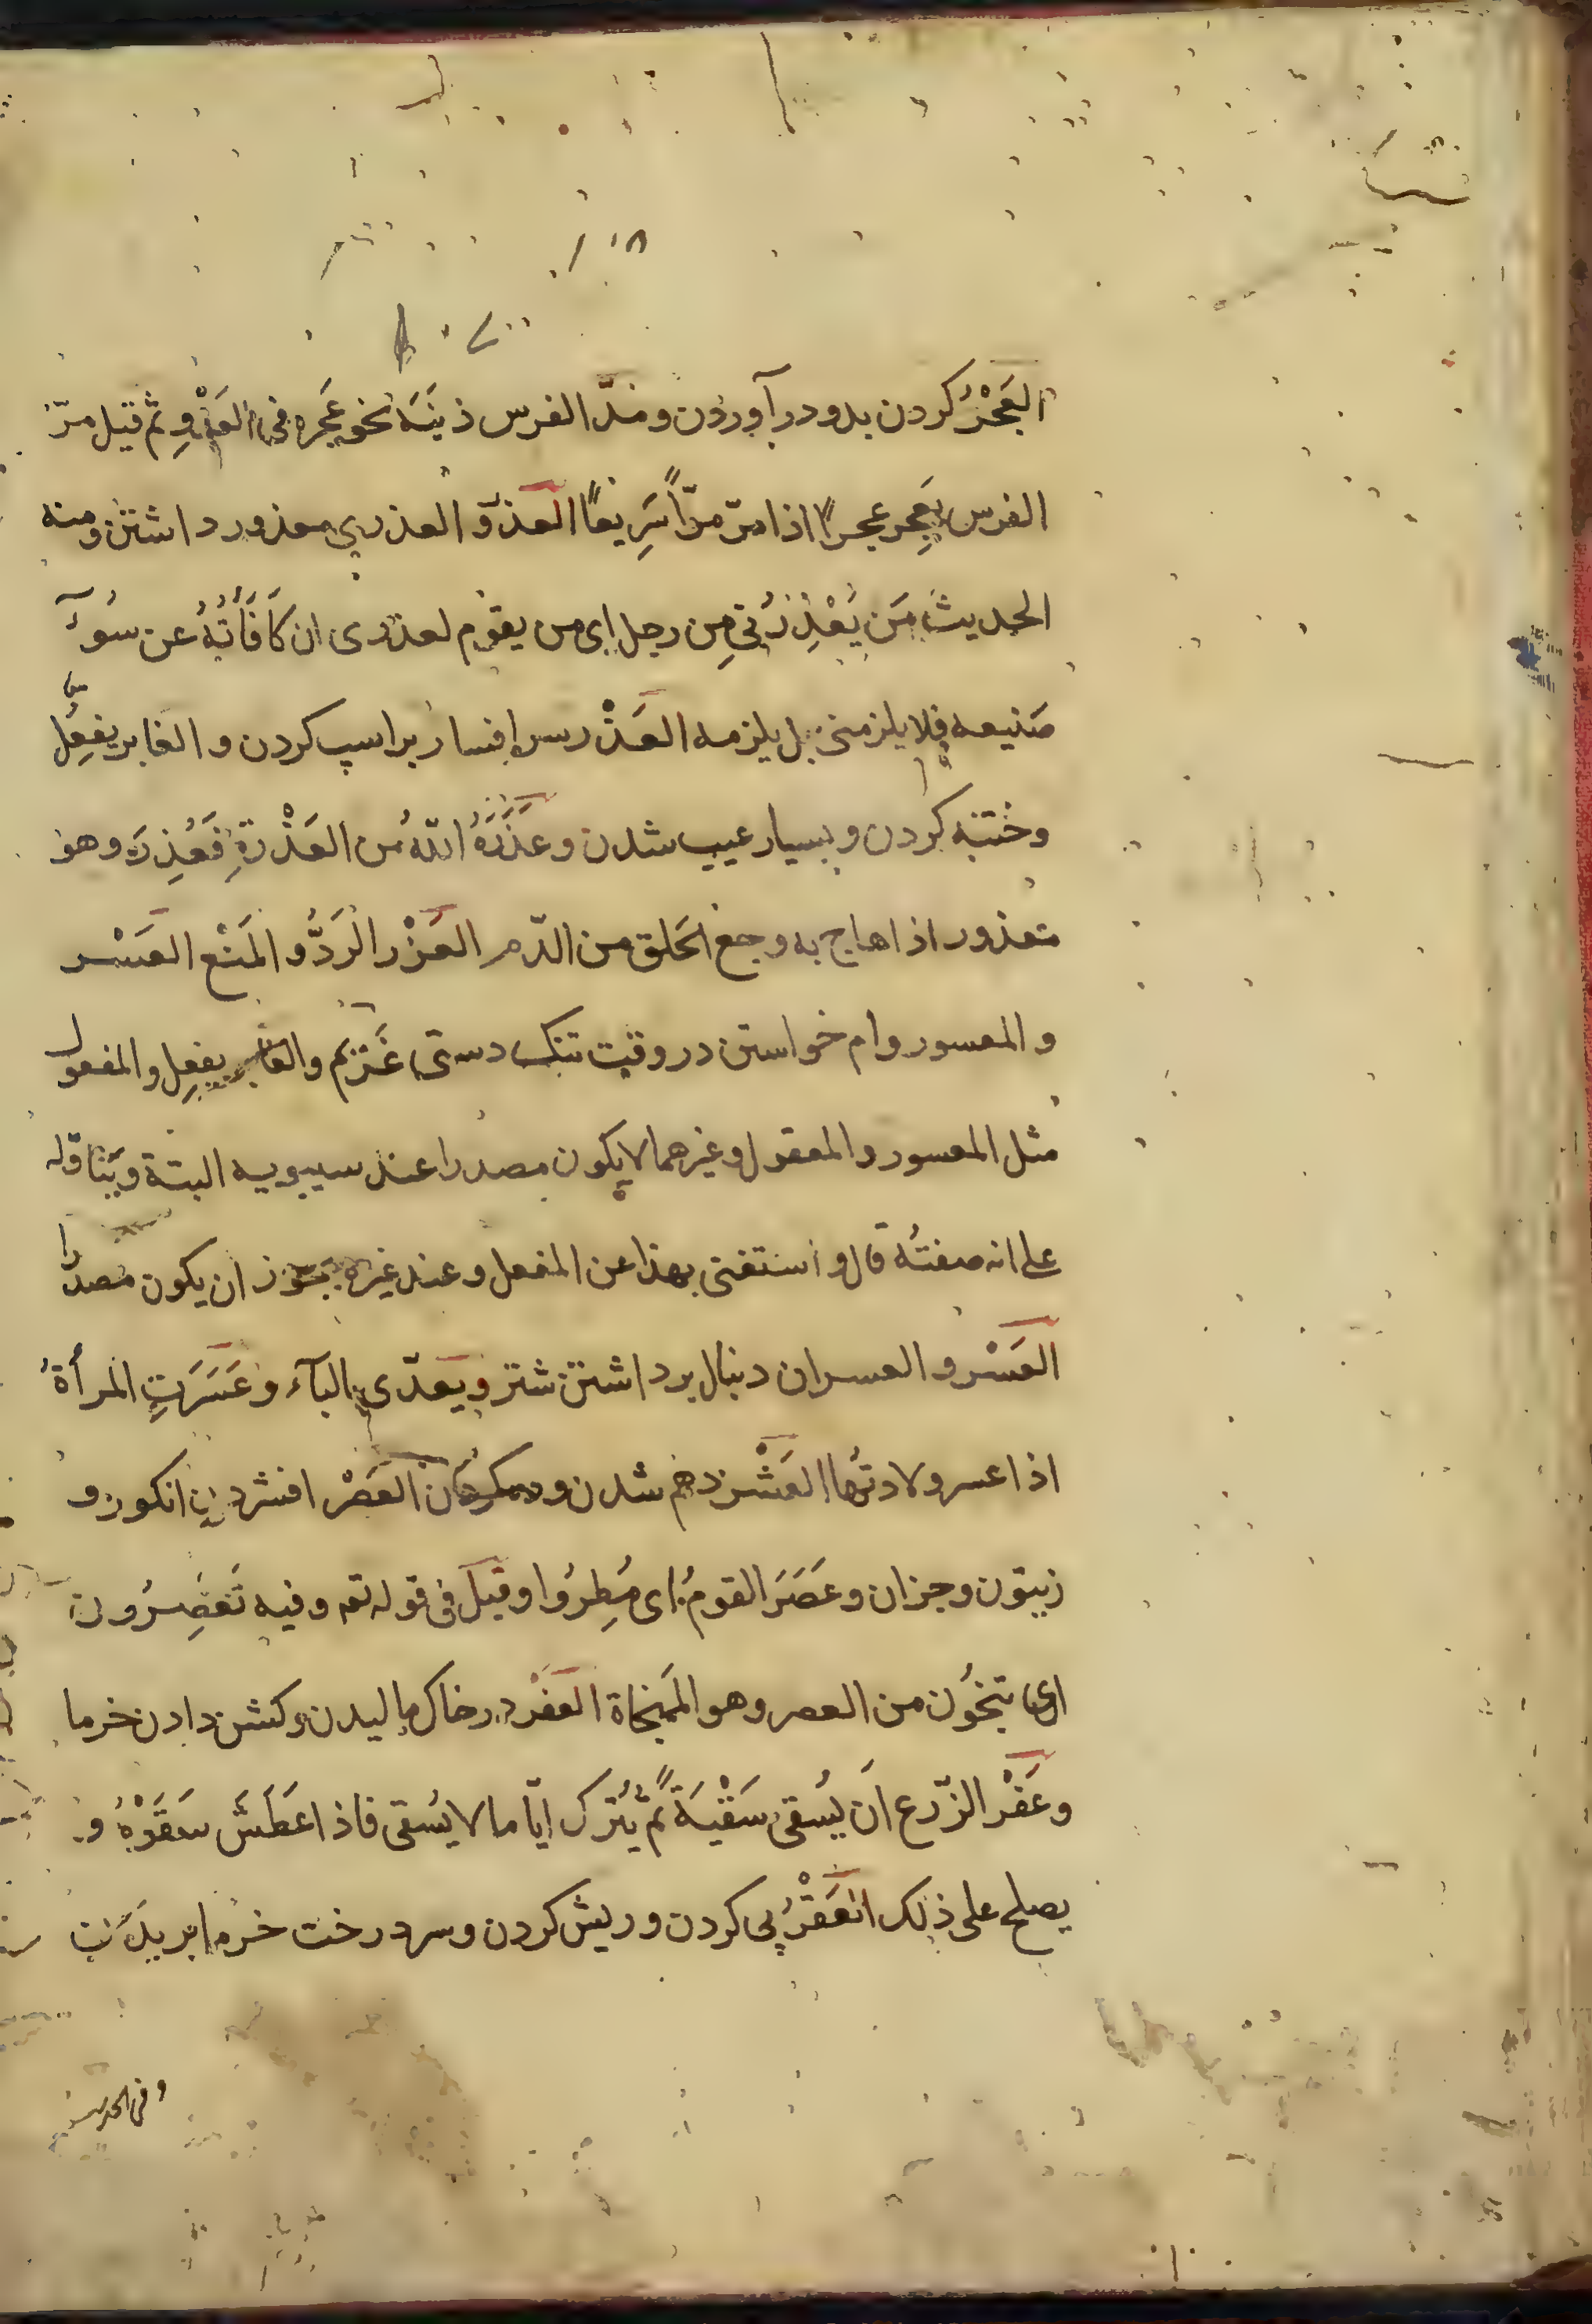 العَجْرُ کردن بدو در آوردن و مدّ الفرس ذَنَبَه نحو عَجزه فی العَدْوِ ثم قیل مرّ
الفرس یَعجِر عجراً اذا مرّ مرّاً سَریعاً العذر و العذری معذور داشتن و منه
الحدیث مَن یَعْذِرُنی مِن رجل ای من یقوم لعذری ان کَافَأتُهُ عن سُوءِ
صَنیعه فلا یلزمنی بل یلزمه العَذْر سر افسار بر اسپ کردن و الغابر یفعِل
و ختنه کردن و بسیار عیب شدن و عَذَرَهُ اللّهُ من العَذْرةِ فَعُذِرَ و هو
معذور اذا هاج به وجع الحَلق من الدّم العَزْر الرَدُّ و المَنْع العَسْر
و المعسور وام خواستن در وقت تنک دستی غریم و الغابر یفعِل و المفعول
مثل المعسور و المعقول و غیرهما لا یکون مصدرا عند سیبویه البتة و یتناوله
علی انه صفته قال و استغنی بهذا عن المفعل و عند غیره یجوز ان یکون مصدرا
العَسْر و العسران دنبال برداشتن شتر و یعدّی بالبآء و عَسَرَتِ المرأةُ
اذا عسر ولادتُها العَشْر دهم شدن و العَصْر افشردن انکور و
زیتون و جزان و عَصَرَ القومُ ای مُطِرُوا و قیل فی قوله تعه و فیه تَعصِرُون
ای تنجُون من العصر و هو المَنجاة العَفْر در خاک مالیدن و کشن دادن خرما
و عَفْر الزّرع اَن یُسقی سَقْیَةً ثم یُترک ایّاما لا یُسقی فاذا عَطَشَ سَقَوْهُ و
یصلح علی ذلک العَقْرُ پی کردن و ریش کردن و سر درخت خرما بریدن
و فی الحدیث